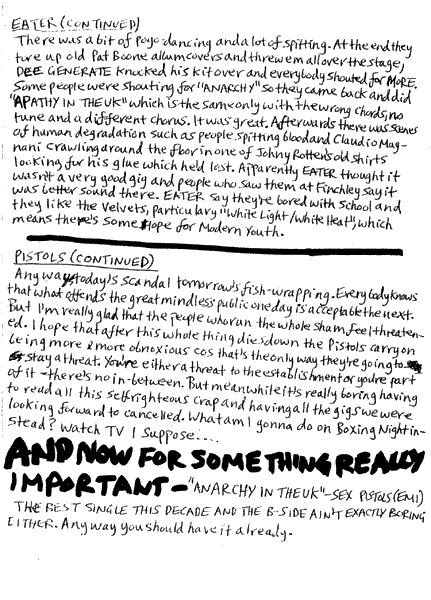 EATER (CONTINUED)
There was a bit of pogo dancing and a lot of spitting. At the end they
tore up old Pat Boone album covers and threw em all over the stage,
DEE GENERATE knocked his kit over and everybody shouted for MORE.
Some people were shouting for "ANARCHY" so they came back and did
"APATHY IN THE UK" which is the same only with the wrong chords, no
tune and a different chorus. It was great. Afterwards there was scenes
of human degradation such as people spitting blood and Claudio Mag-
nani crawling around the floor in one of Johny Rotten's old shirts
looking for his glue which he'd lost. Apparently EATER thought it
wasn't a very good gig and people who saw them at Finchley say it
was better sound there. EATER say they're bored with school and
they like the Velvets, particulary "White Light/White Heat", which
means there's some Hope for Modern Youth.
PISTOLS (CONTINUED)
Anyway, today's scandal tomorrow's fish-wrapping. Everybody knows
that what offends the great mindless public one day is acceptable the next.
But I'm really glad that the people who run the whole sham, feel threaten-
ed. I hope that after this whole thing dies down the Pistols carry on
being more & more obnoxious cos that's the only way they're going to
stay a threat. You're either a threat to the establishment or you're part
of it - there's no in-between. But meanwhile it's really boring having
to read all this selfrighteous crap and having all the gigs we were
looking forward to cancelled. What am I gonna do on Boxing Night in-
stead? Watch TV I suppose....
AND NOW FOR SOMETHING REALLY
IMPORTANT - "ANARCHY IN THE UK" - SEX PISTOLS (EMI)
THE BEST SINGLE THIS DECADE AND THE B-SIDE AIN'T EXACTLY BORING
EITHER. Anyway you should have it already.